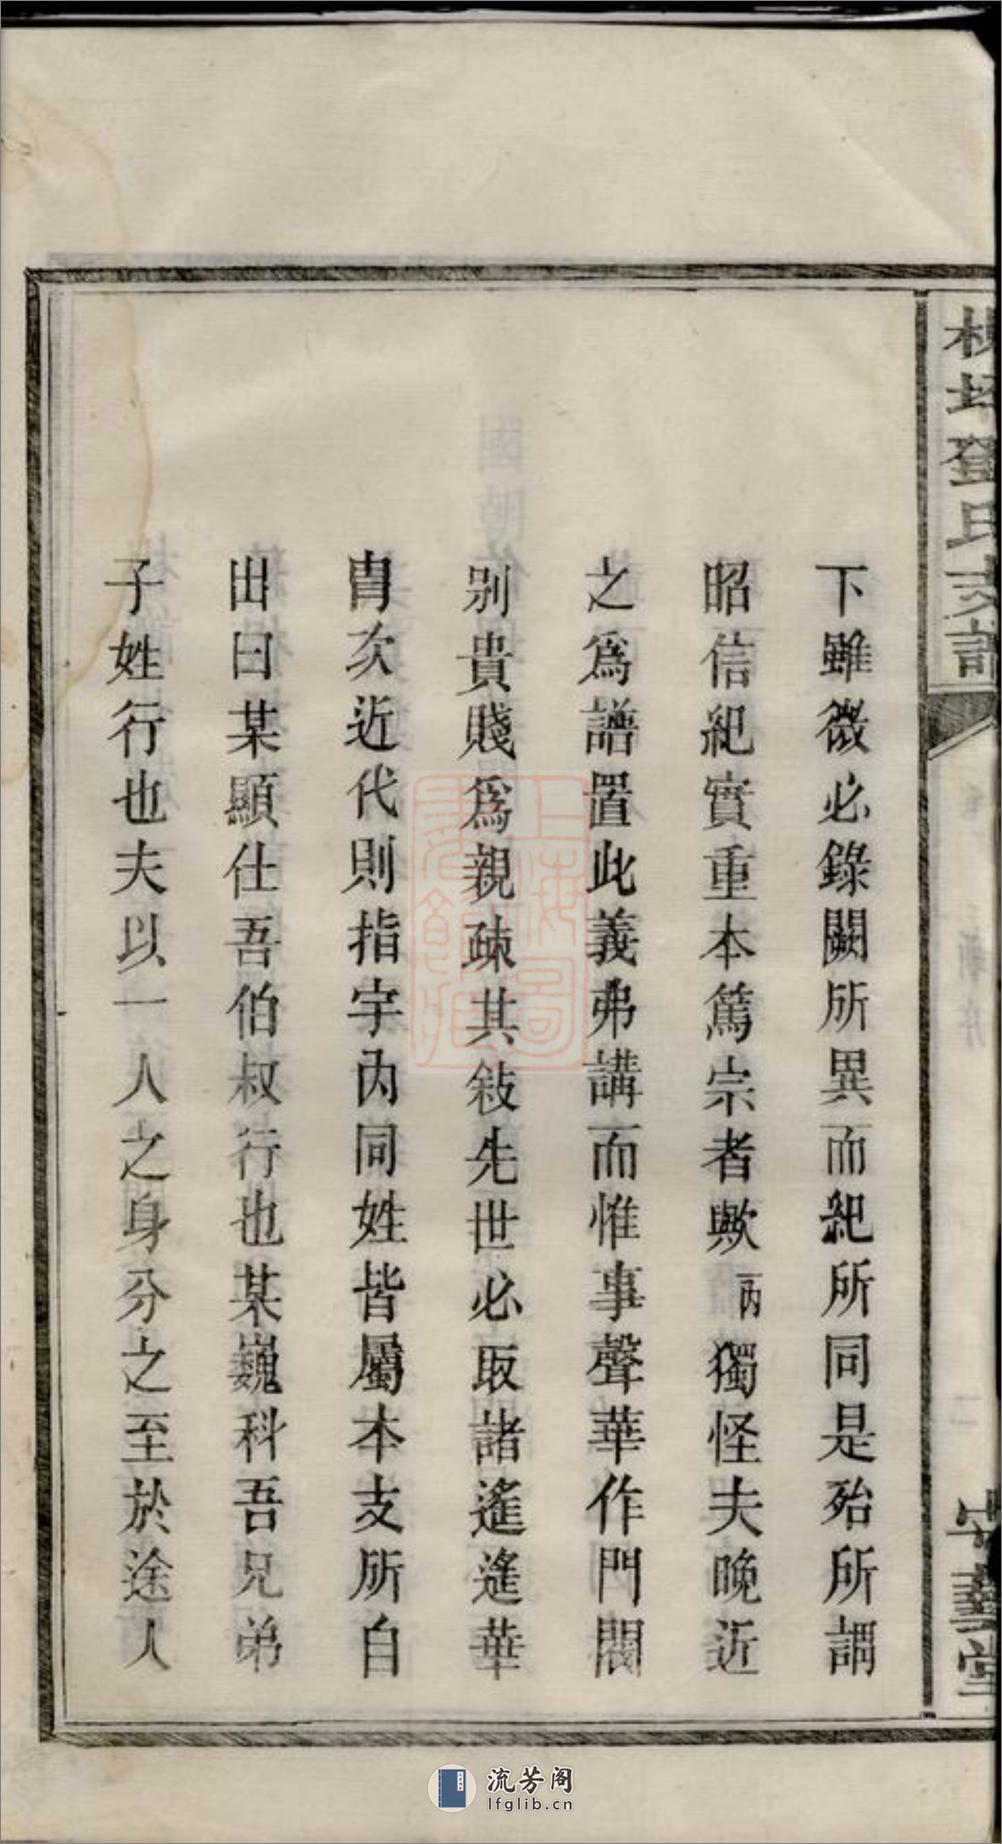 鄧氏支譜
安義堂
下雖微必錄闕所異而紀所同是殆所謂
昭信紀實重本篤宗者歟丙獨怪夫晚近
之爲譜置此義弗講而惟事聲華作門閥
别貴賤爲親疎其敍先世必取諸遙遙華
胄次近代則指宇內同姓皆屬本支所自
出曰某顯仕吾伯叔行也某巍科吾兄弟
子姓行也夫以一人之身分之至於途人
流芳阁
lfglib.cn